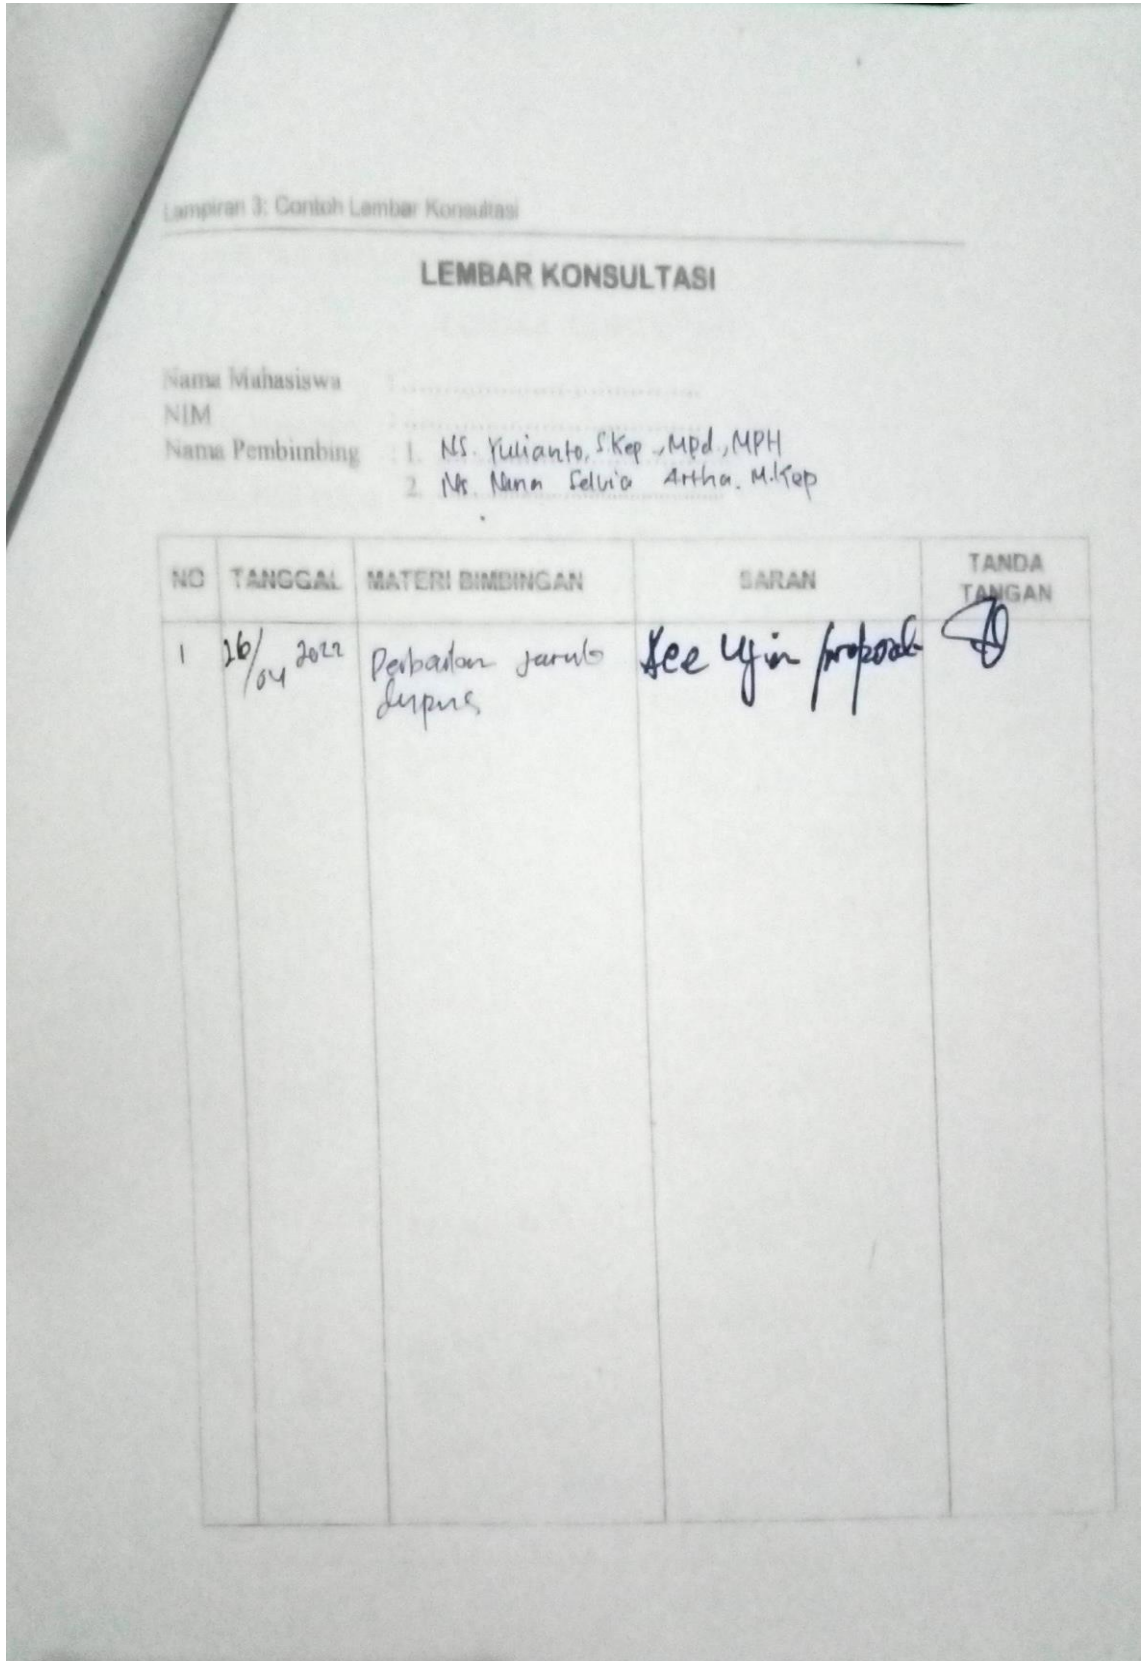 Lampiran 3: Contoh Lembar Konsultasi
LEMBAR KONSULTASI
Nama Mahasiswa :
NIM :
Nama Pembimbing : 1. NS. Yulianto, S.Kep., MPd., MPH
2. Ns. Nana Selvia Artha. M.Kep
NO TANGGAL MATERI BIMBINGAN SARAN TANDA TANGAN
1 26/04 2022 Perbaikan Acc Ujian proposal